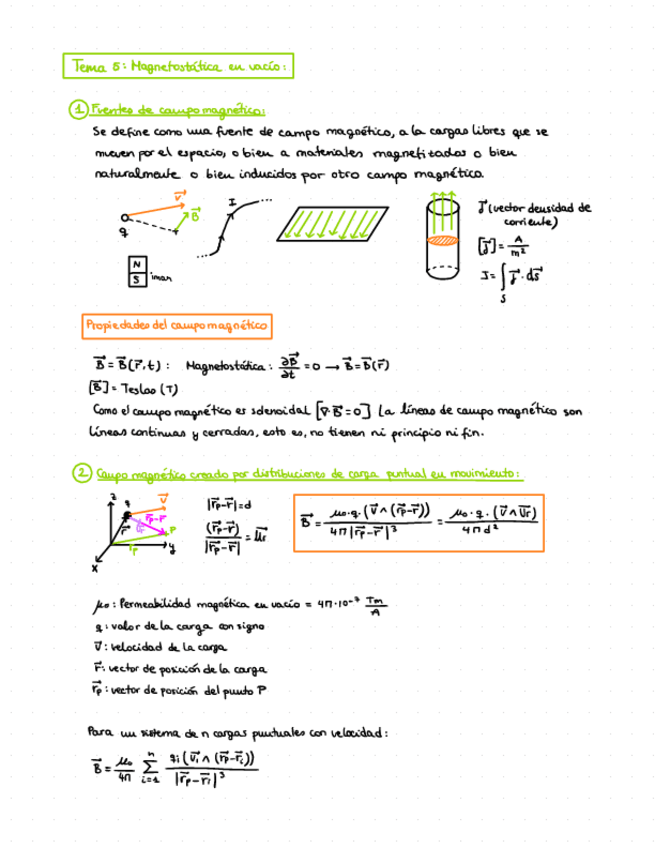 Tema 5: Magnetostática en vacío:
1 Fuentes de campo magnético:
Se define como una fuente de campo magnético, a la cargas libres que se
mueven por el espacio, o bien a materiales magnetizados o bien
naturalmente o bien inducidos por otro campo magnético.
v⃗
B⃗
q
I
N
S
iman
J⃗ (vector densidad de
corriente)
[J⃗] = A/m²
I = ∫_S J⃗ · dS⃗
Propiedades del campo magnético
B⃗ = B⃗(r⃗,t) : Magnetostática : ∂B⃗/∂t = 0 → B⃗ = B⃗(r⃗)
[B⃗] = Teslas (T)
Como el campo magnético es solenoidal [∇·B⃗ = 0] La líneas de campo magnético son
líneas continuas y cerradas, esto es, no tienen ni principio ni fin.
2 Campo magnético creado por distribuciones de carga puntual en movimiento:
z
q
v⃗
r⃗p-r⃗
r⃗
P
r⃗p
y
x
|r⃗p-r⃗| = d
(r⃗p-r⃗)/|r⃗p-r⃗| = u⃗r
B⃗ = μ₀·q·(v⃗ ∧ (r⃗p-r⃗)) / 4π|r⃗p-r⃗|³ = μ₀·q·(v⃗ ∧ u⃗r) / 4πd²
μ₀: Permeabilidad magnética en vacío = 4π·10⁻⁷ Tm/A
q: valor de la carga con signo
v⃗: velocidad de la carga
r⃗: vector de posición de la carga
r⃗p: vector de posición del punto P
Para un sistema de n cargas puntuales con velocidad:
B⃗ = μ₀/4π ∑_{i=1}^{n} qi(v⃗i ∧ (r⃗p-r⃗i)) / |r⃗p-r⃗i|³